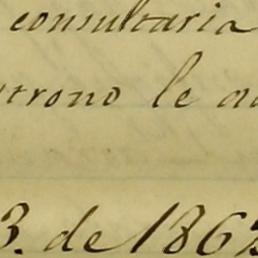 consultaria
trono le a
3. de 186